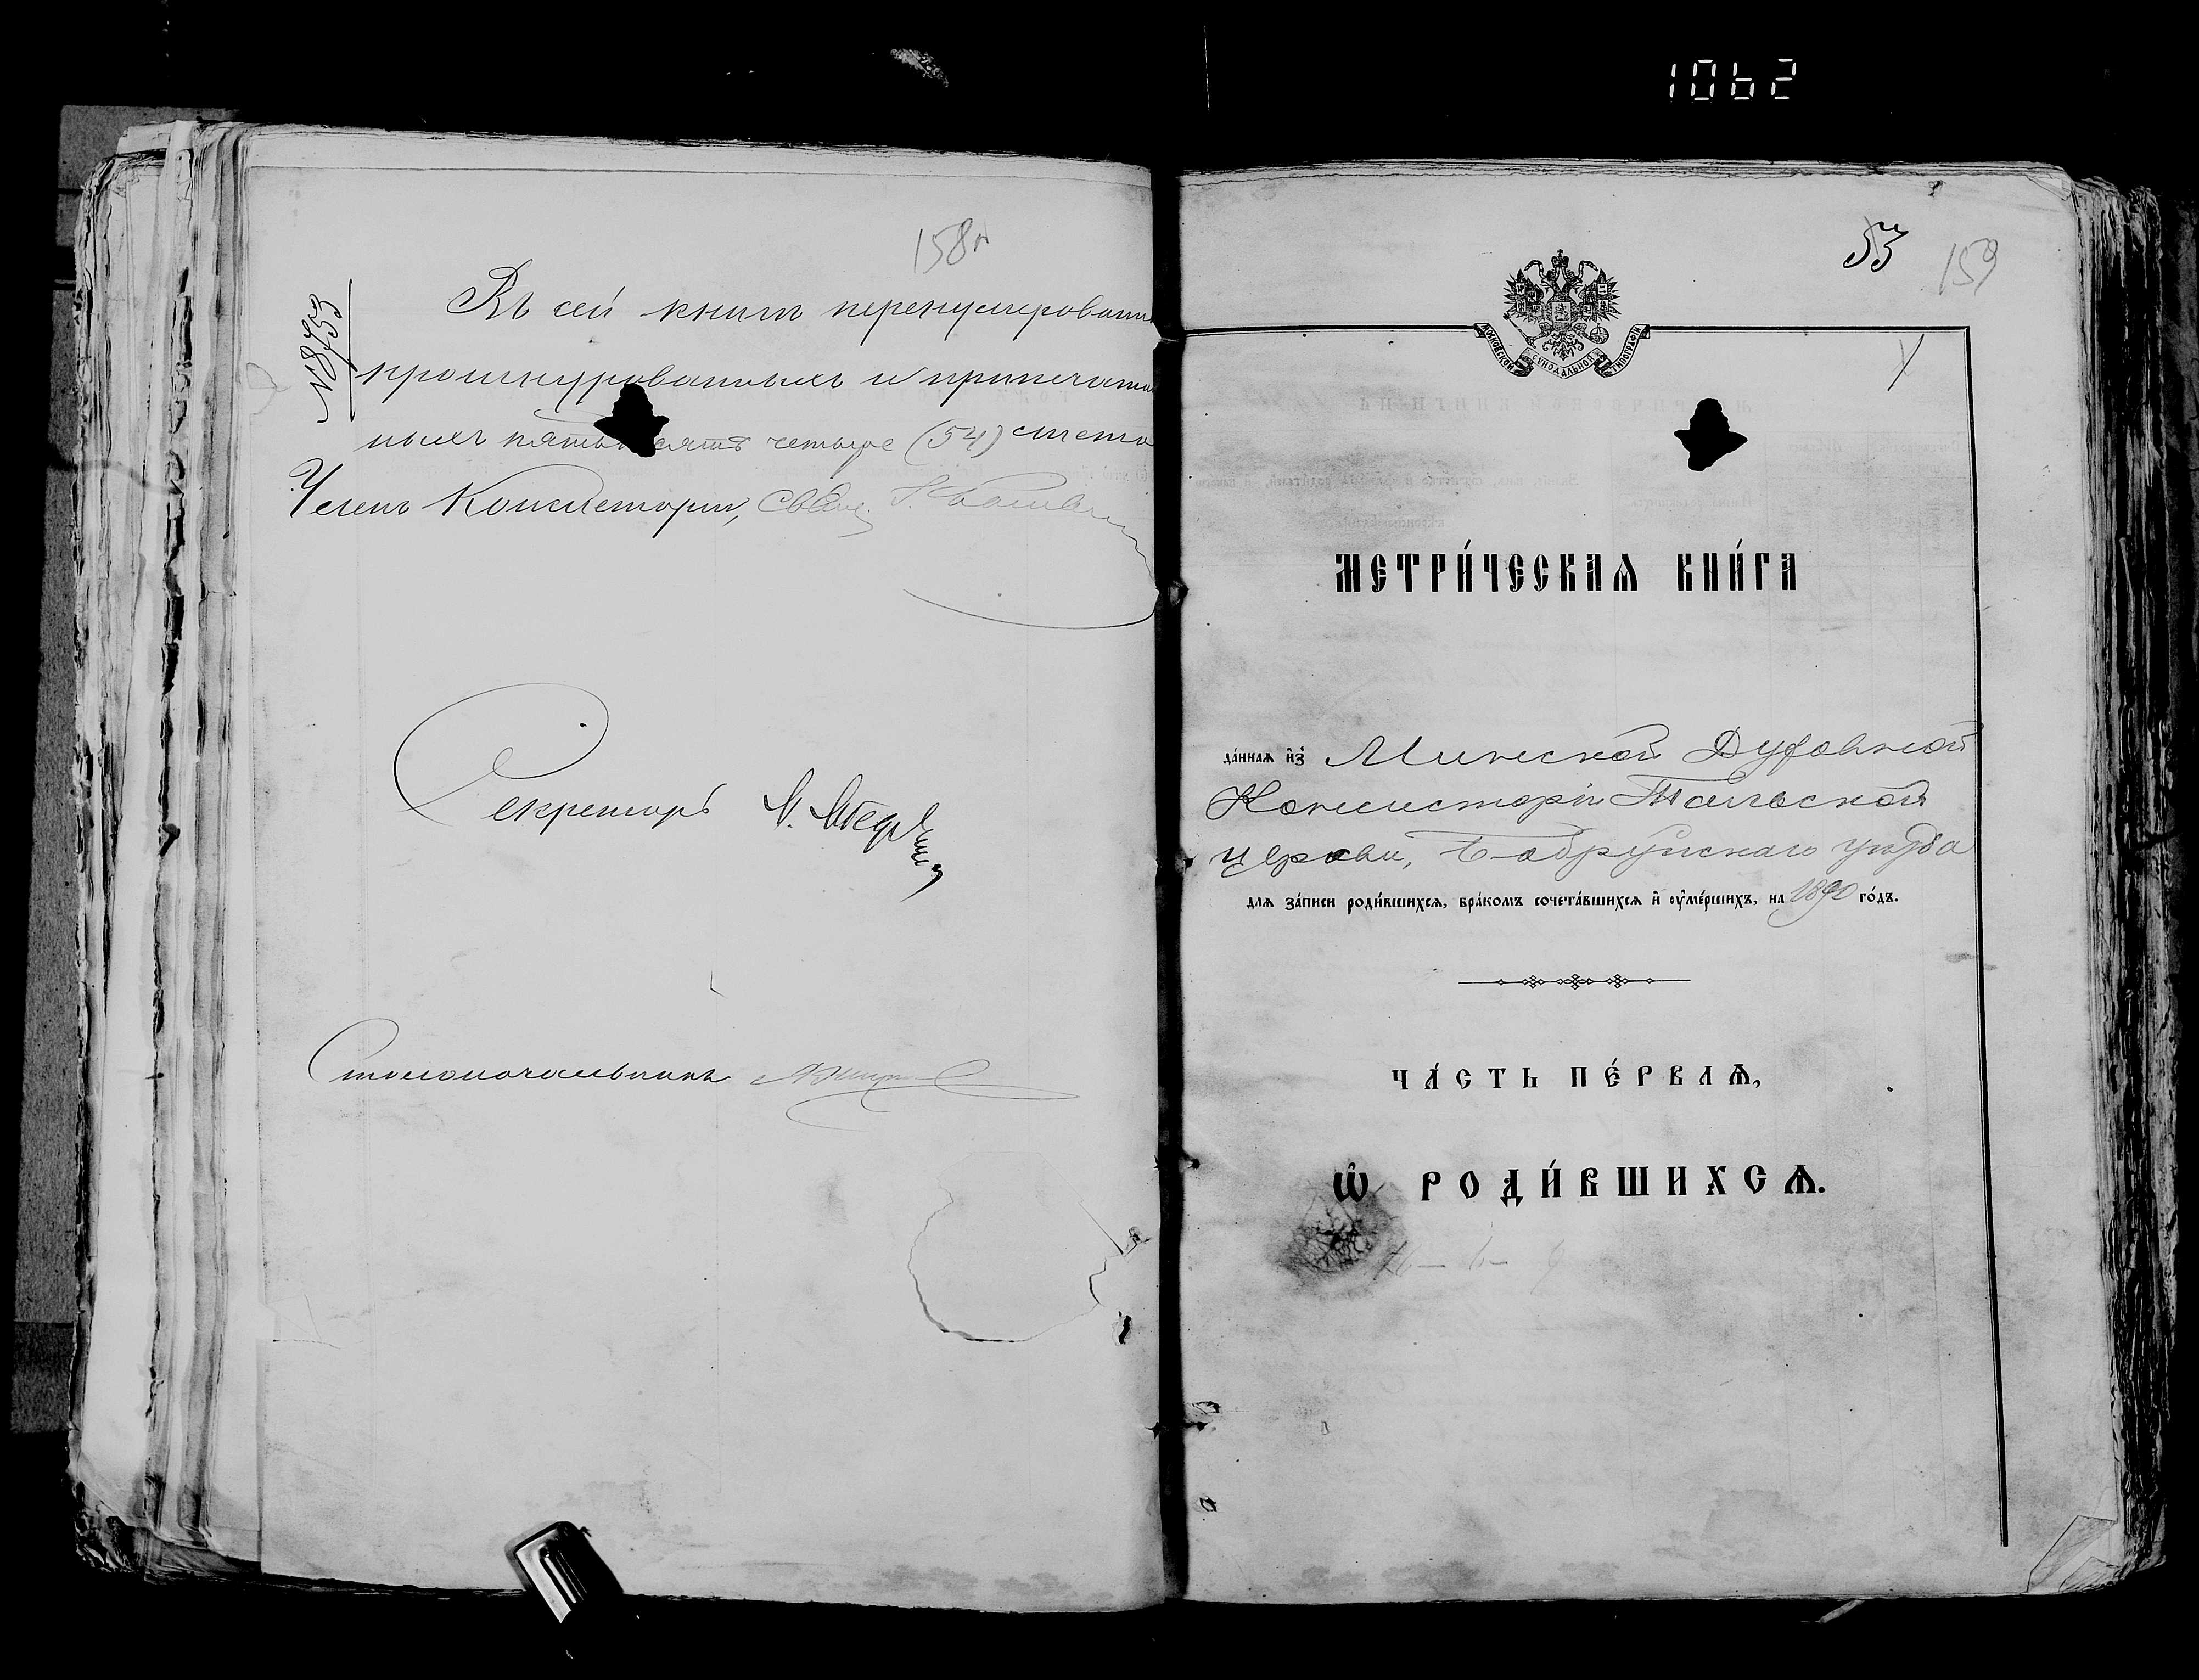 1062
158
№ 8753
Въ сей книгѣ перенумерован
прошнурованныхъ и припечата
ныхъ пятьдесятъ четыре (54) листа
Членъ Консисторіи, Свящ.
Секретарь
Столоначальникъ
53 159
МОСКОВСКОЙ СѴНОДАЛЬНОЙ ТИПОГРАФІИ
МЕТРИ́ЧЕСКАѦ КНИ́ГА
да́ннаѧ и҆з̾ Минской Духовной
Консисторіи Тальской
церкви, Бобруйскаго уѣзда
длѧ за́писи роди́вшихсѧ, бра́комъ сочета́вшихсѧ и҆ ѹ҆ме́ршихъ, на 1890 го́дъ.
ЧА́СТЬ ПЕ́РВАѦ,
Ѡ҆ РОДИ́ВШИХСѦ.